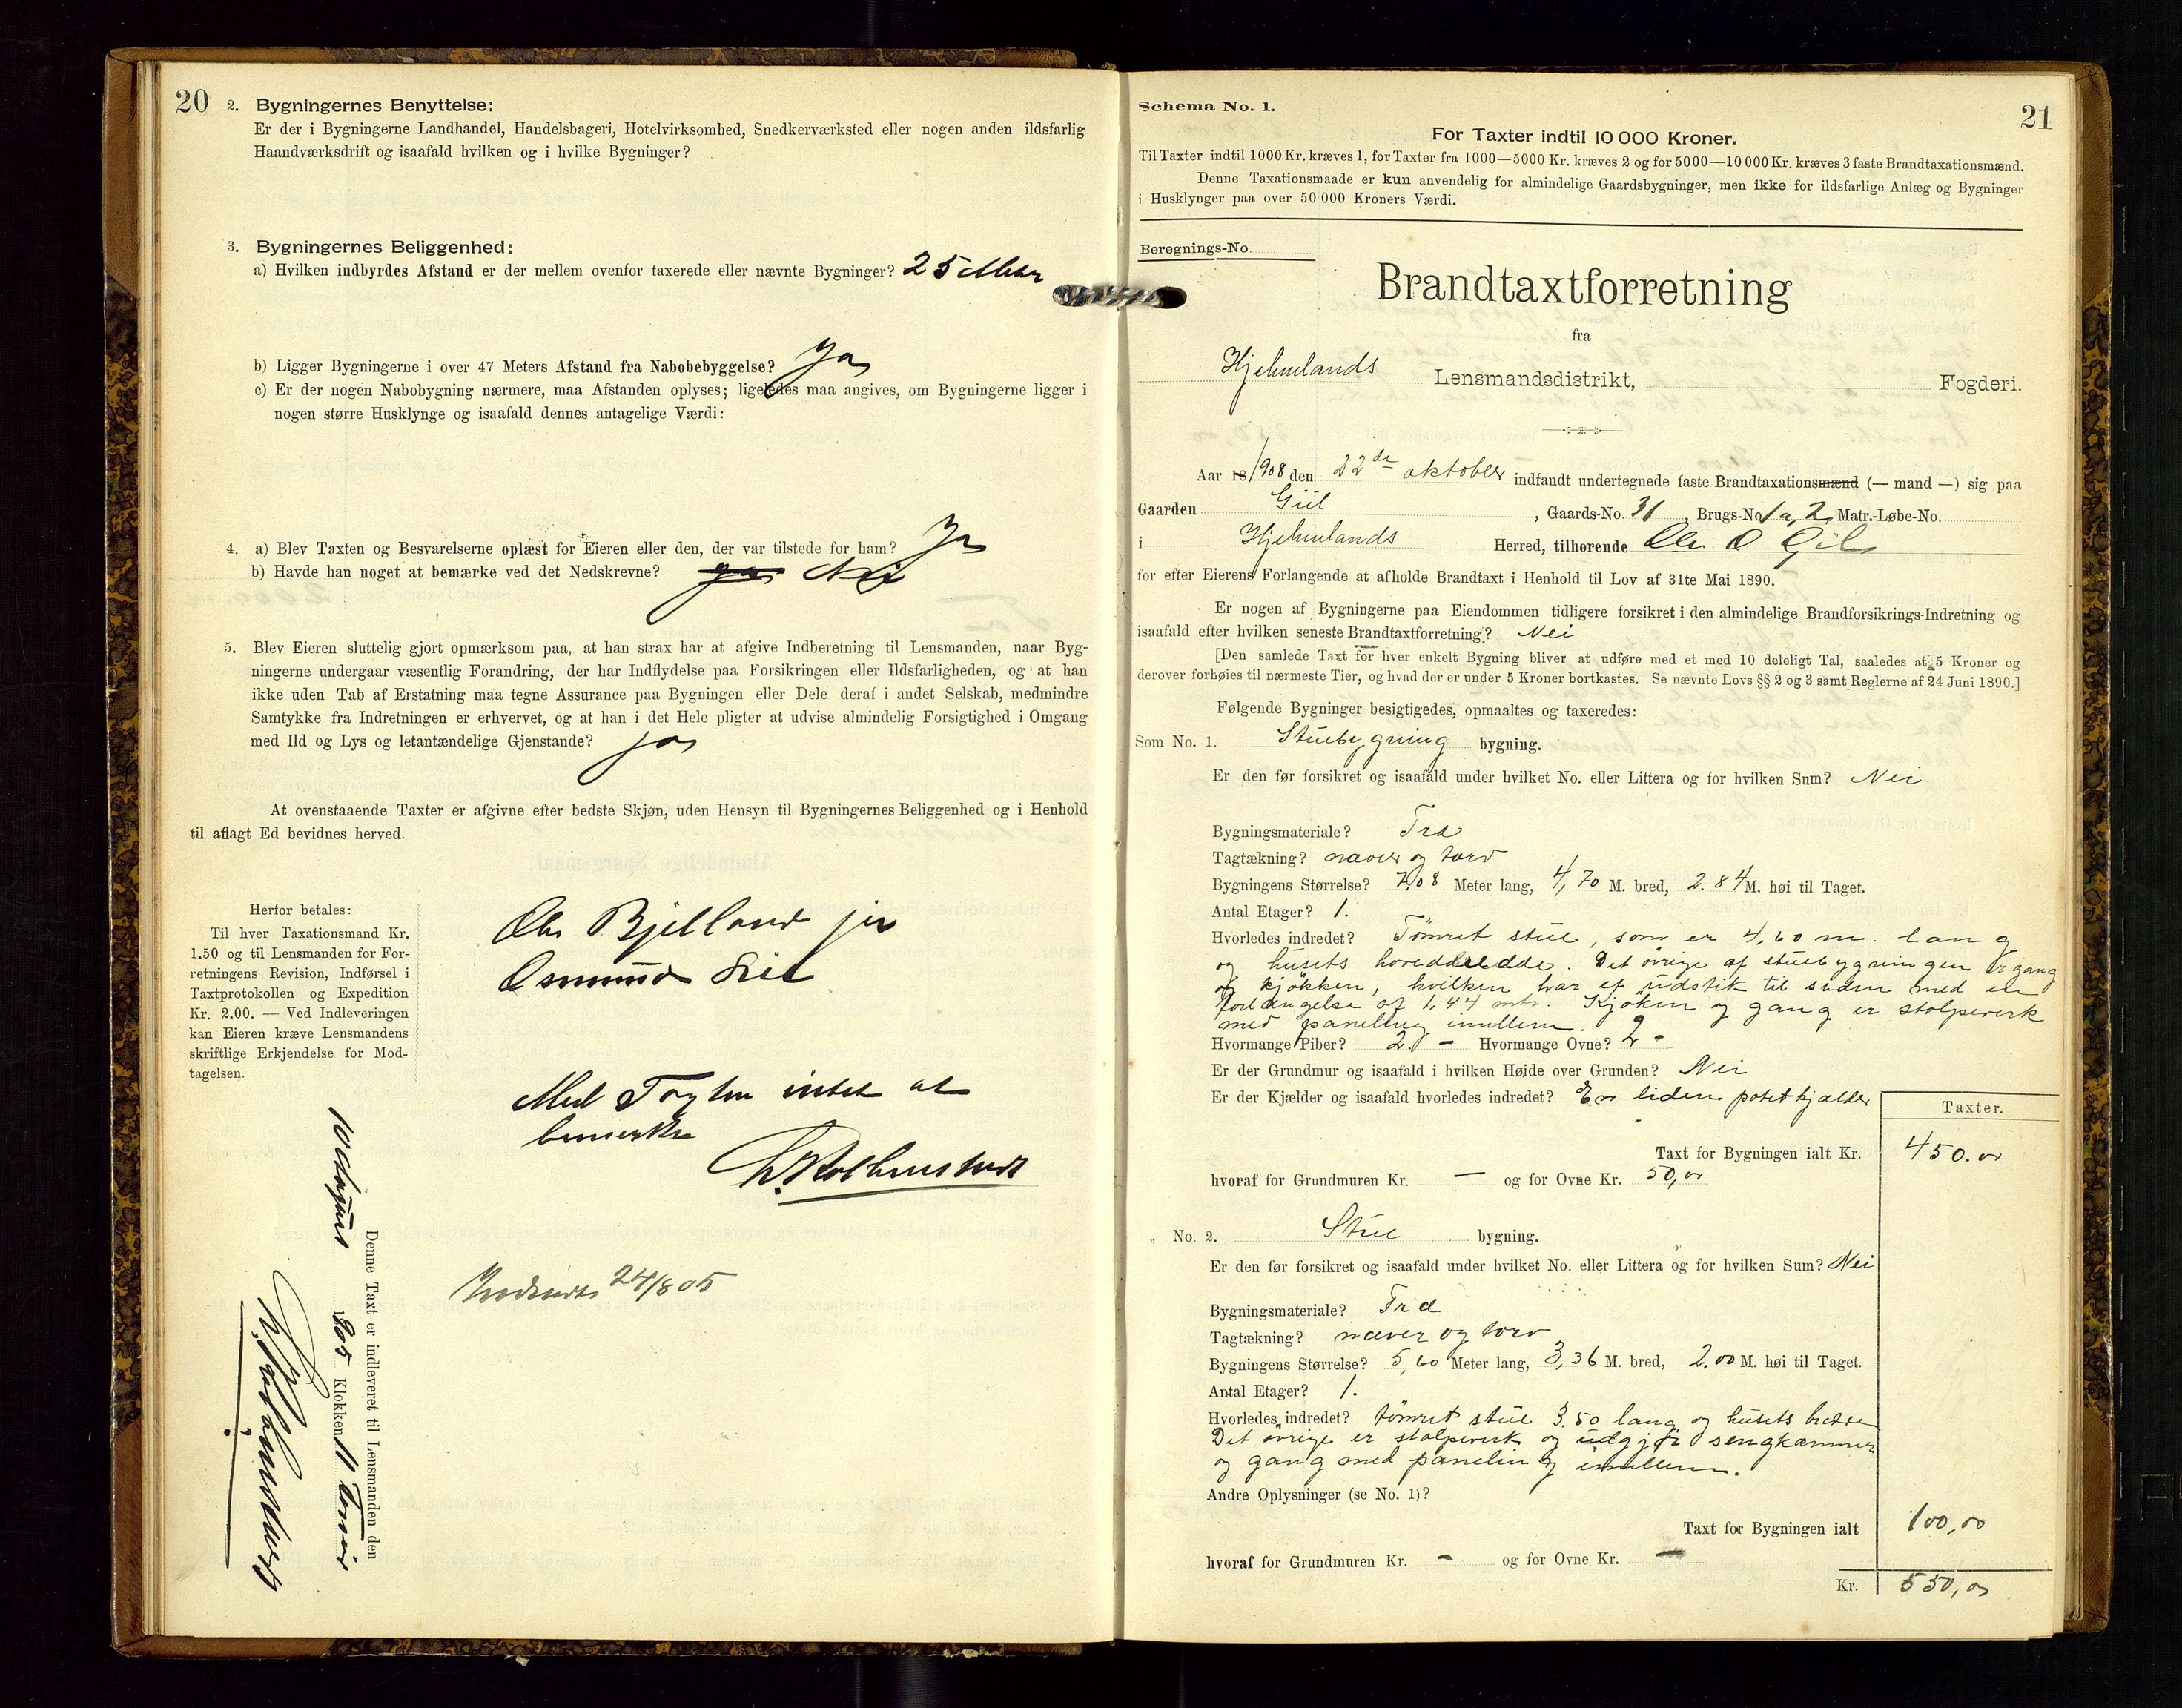 20
2. Bygningernes Benyttelse:
Er der i Bygningerne Landhandel, Handelsbageri, Hotelvirksomhed, Snedkerværksted eller nogen anden ildsfarlig
Haandværksdrift og isaafald hvilken og i hvilke Bygninger?
3. Bygningernes Beliggenhed:
a) Hvilken indbyrdes Afstand er der mellem ovenfor taxerede eller nævnte Bygninger? 25 Meter
b) Ligger Bygningerne i over 47 Meters Afstand fra Nabobebyggelse? Ja
c) Er der nogen Nabobygning nærmere, maa Afstanden oplyses; ligeledes maa angives, om Bygningerne ligger i
nogen større Husklynge og isaafald dennes antagelige Værdi:
4. a) Blev Taxten og Besvarelserne oplæst for Eieren eller den, der var tilstede for ham? Ja
b) Havde han noget at bemærke ved det Nedskrevne? ja Nei
5. Blev Eieren sluttelig gjort opmærksom paa, at han strax har at afgive Indberetning til Lensmanden, naar Byg-
ningerne undergaar væsentlig Forandring, der har Indflydelse paa Forsikringen eller Ildsfarligheden, og at han
ikke uden Tab af Erstatning maa tegne Assurance paa Bygningen eller Dele deraf i andet Selskab, medmindre
Samtykke fra Indretningen er erhvervet, og at han i det Hele pligter at udvise almindelig Forsigtighed i Omgang
med Ild og Lys og letantændelige Gjenstande? ja
At ovenstaaende Taxter er afgivne efter bedste Skjøn, uden Hensyn til Bygningernes Beliggenhed og i Henhold
til aflagt Ed bevidnes herved.
Herfor betales:
Til hver Taxationsmand Kr.
1.50 og til Lensmanden for For-
retningens Revision, Indførsel i
Taxtprotokollen og Expedition
Kr. 2.00. — Ved Indleveringen
kan Eieren kræve Lensmandens
skriftlige Erkjendelse for Mod-
tagelsen.
Ole Bjelland jr
Osmund
Med Taxten intet at
bemerke
Indsendt 24/8 05
Denne Taxt er indleveret til Lensmanden den
10 August 1905 Klokken 11
Schema No. 1.
21
For Taxter indtil 10 000 Kroner.
Til Taxter indtil 1000 Kr. kræves 1, for Taxter fra 1000—5000 Kr. kræves 2 og for 5000—10 000 Kr. kræves 3 faste Brandtaxationsmænd.
Denne Taxationsmaade er kun anvendelig for almindelige Gaardsbygninger, men ikke for ildsfarlige Anlæg og Bygninger
i Husklynger paa over 50 000 Kroners Værdi.
Beregnings-No.
Brandtaxtforretning
fra
Hjelmelands Lensmandsdistrikt, Fogderi.
Aar 18/1908 den 22de oktober indfandt undertegnede faste Brandtaxationsmænd (— mand —) sig paa
Gaarden Giil, Gaards-No. 31, Brugs-No. 1a, 2, Matr.-Løbe-No.
i Hjelmelands Herred, tilhørende Ole O Giil
for efter Eierens Forlangende at afholde Brandtaxt i Henhold til Lov af 31te Mai 1890.
Er nogen af Bygningerne paa Eiendommen tidligere forsikret i den almindelige Brandforsikrings-Indretning og
isaafald efter hvilken seneste Brandtaxtforretning? Nei
[Den samlede Taxt for hver enkelt Bygning bliver at udføre med et med 10 deleligt Tal, saaledes at 5 Kroner og
derover forhøies til nærmeste Tier, og hvad der er under 5 Kroner bortkastes. Se nævnte Lovs §§ 2 og 3 samt Reglerne af 24 Juni 1890.]
Følgende Bygninger besigtigedes, opmaaltes og taxeredes:
Som No. 1. Stuebygning bygning.
Er den før forsikret og isaafald under hvilket No. eller Littera og for hvilken Sum? Nei
Bygningsmateriale? Træ
Tagtækning? næver og torv
Bygningens Størrelse? 7,08 Meter lang, 4,70 M. bred, 2.84 M. høi til Taget.
Antal Etager? 1.
Hvorledes indredet? Tømret stue, som er 4,60 m. lang
og husets hovedbredde. Det øvrige af stuebygningen er gang
og kjøkken, hvilken har et udstik til siden med en
forlængelse af 1,44 mtr. Kjøken og gang er stolpeverk
med paneling imellem.
Hvormange Piber? 2. — Hvormange Ovne? 2 -
Er der Grundmur og isaafald i hvilken Høide over Grunden? Nei
Er der Kjælder og isaafald hvorledes indredet? En liden potetkjælder
Taxter.
Taxt for Bygningen ialt Kr. 450.00
hvoraf for Grundmuren Kr. — og for Ovne Kr. 50,00
„ No. 2. Stue bygning.
Er den før forsikret og isaafald under hvilket No. eller Littera og for hvilken Sum? Nei
Bygningsmateriale? Træ
Tagtækning? næver og torv
Bygningens Størrelse? 5,60 Meter lang, 3,36 M. bred, 2,00 M. høi til Taget.
Antal Etager? 1.
Hvorledes indredet? tømret stue 3.50 lang og husets bredde
Det øvrige er stolpeverk og udgjør sengkammer
og gang med paneling imellem.
Andre Oplysninger (se No. 1)?
Taxt for Bygningen ialt 100,00
hvoraf for Grundmuren Kr. - og for Ovne Kr. —
Kr. 550,00